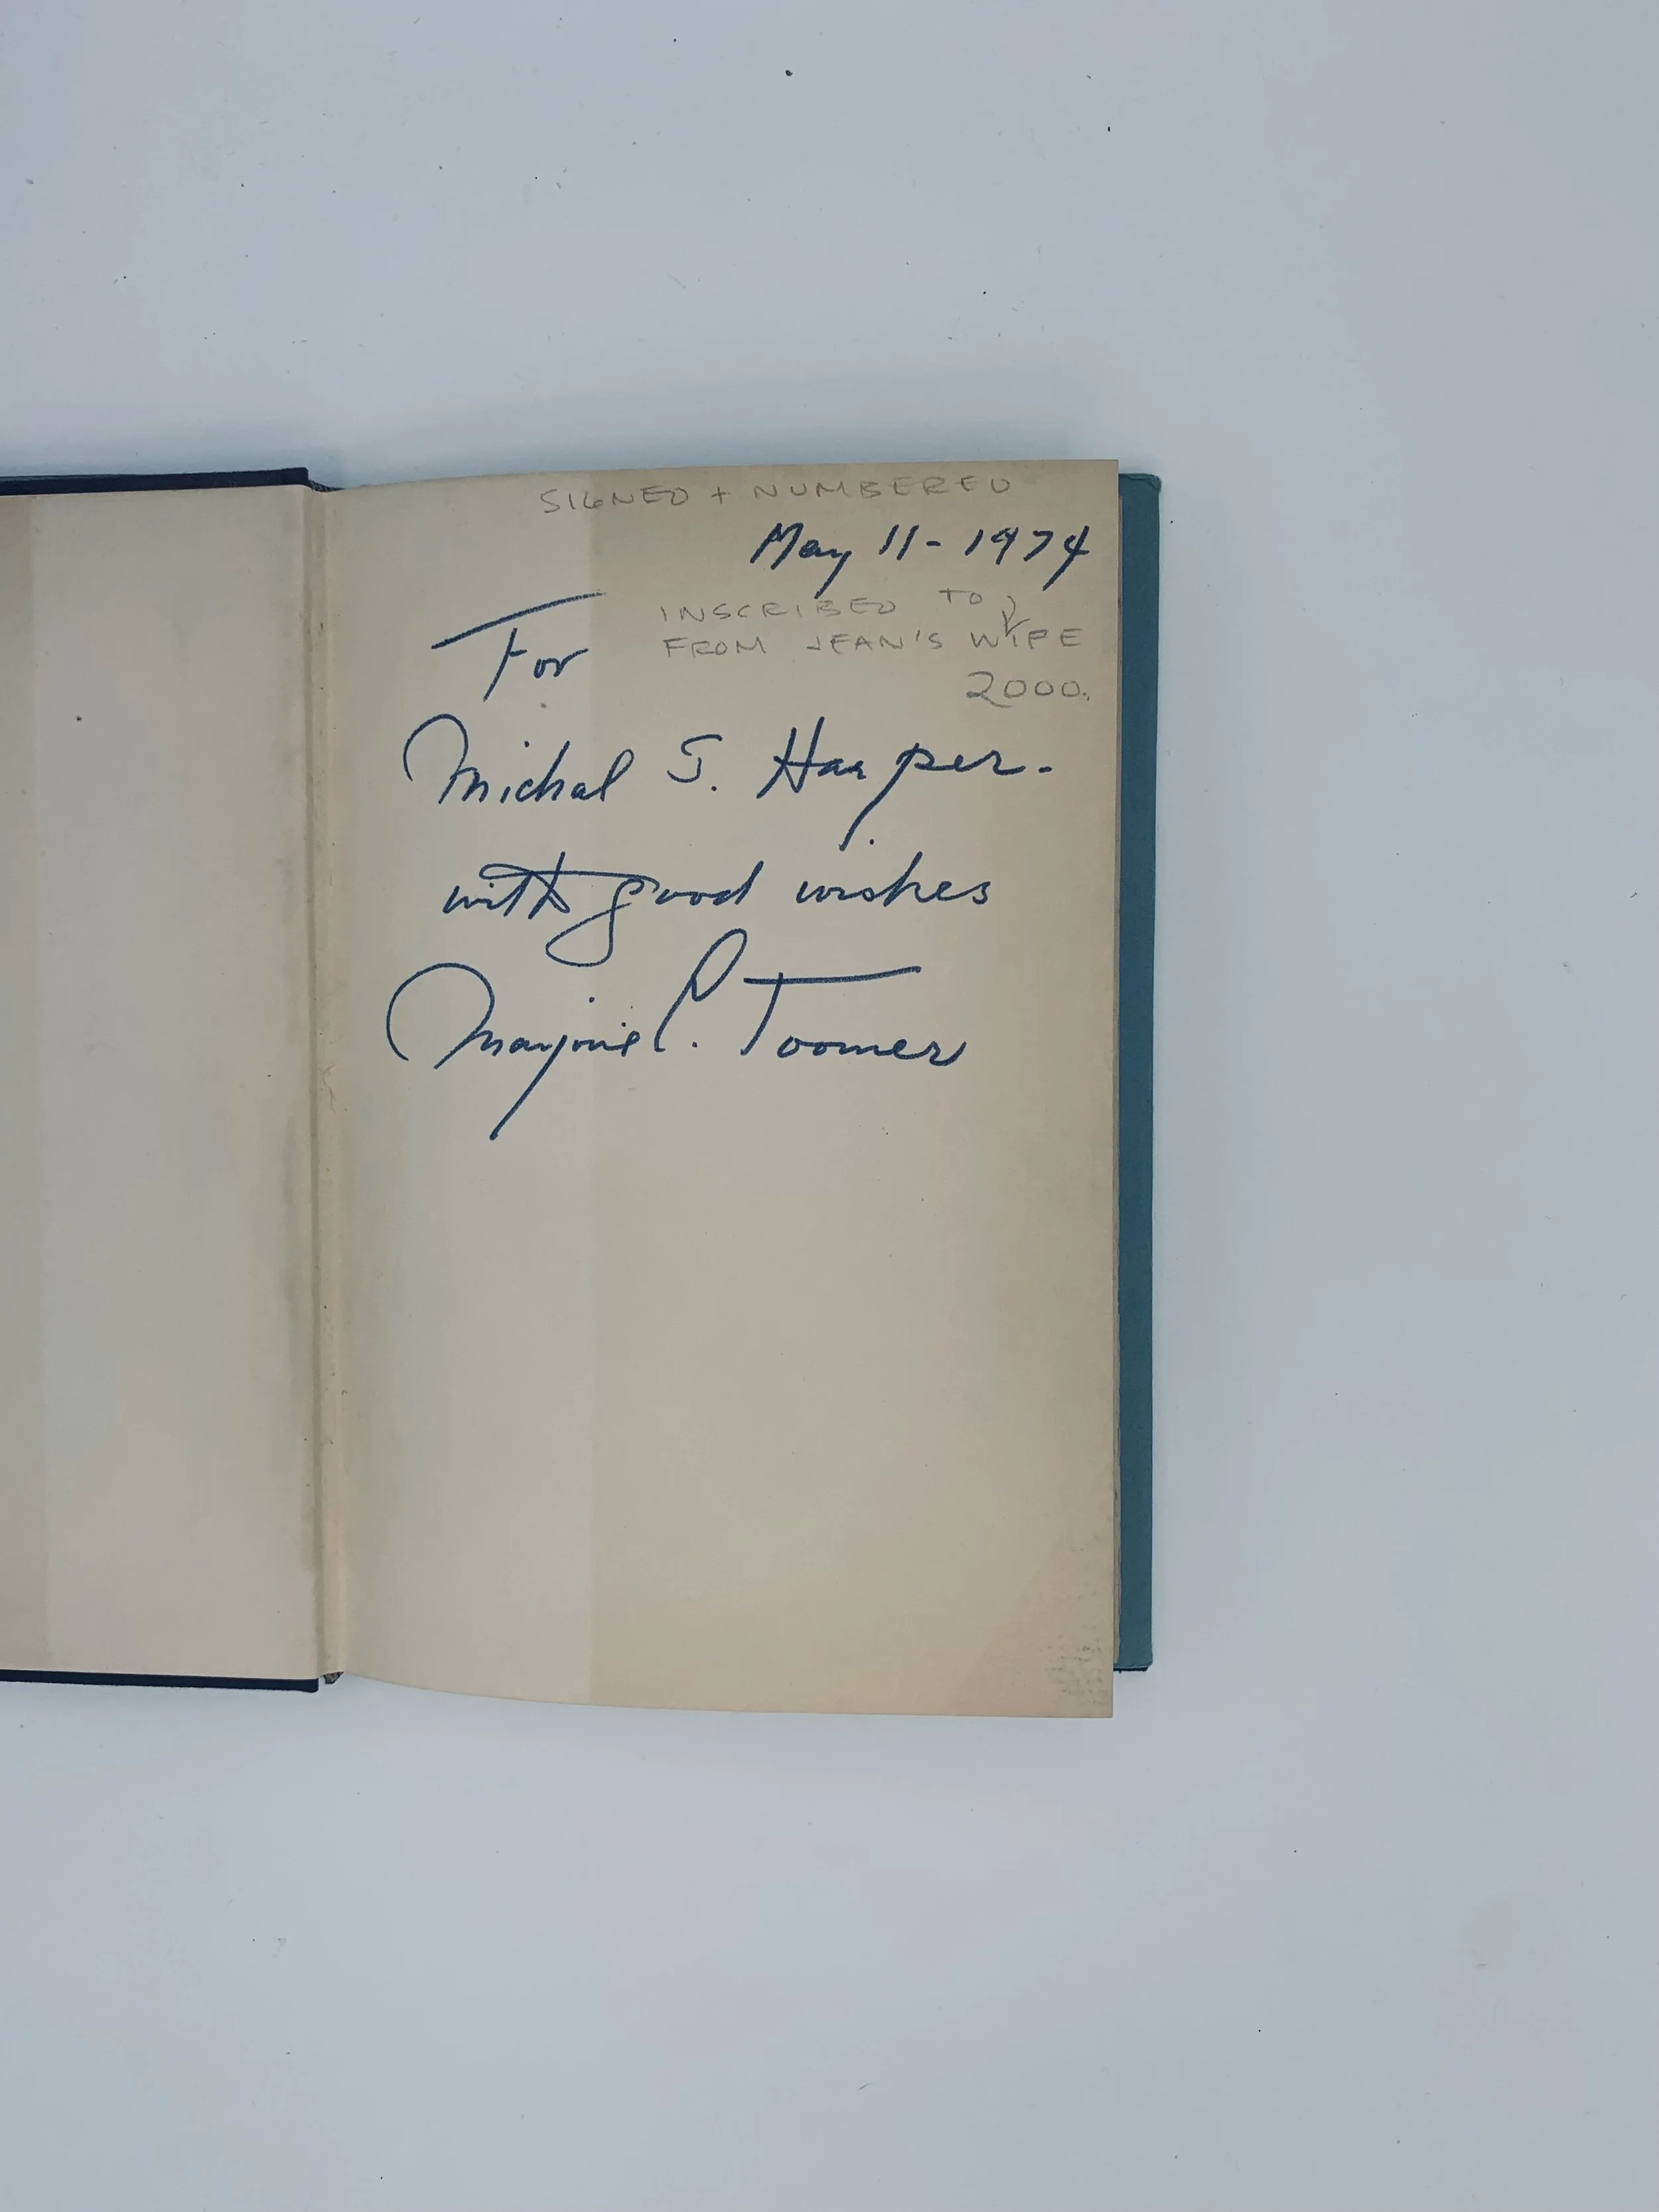 SIGNED + NUMBERED
May 11 - 1974
INSCRIBED TO,
For
FROM JEAN'S WIFE
2000.
Michal S. Harper.
with good wishes
Marjorie C. Toomer